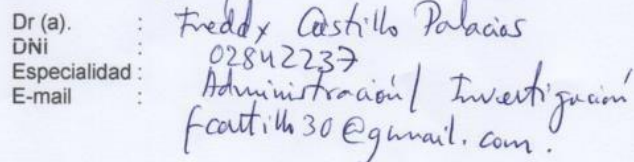 Dr (a). : Freddy Castillo Palacios
DNi : 02842237
Especialidad : Administración / Investigación
E-mail : fcastillo30@gmail.com.